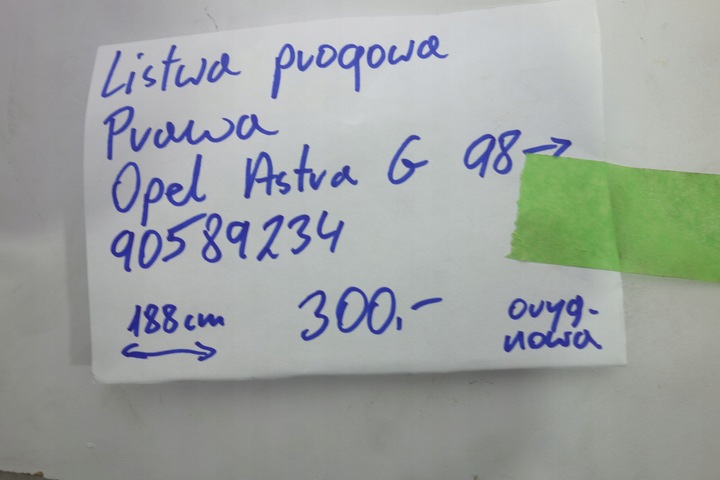 Listwa progowa
Prawa
Opel Astra G 98→
90589234
188cm
300.-
oryg.
nowa